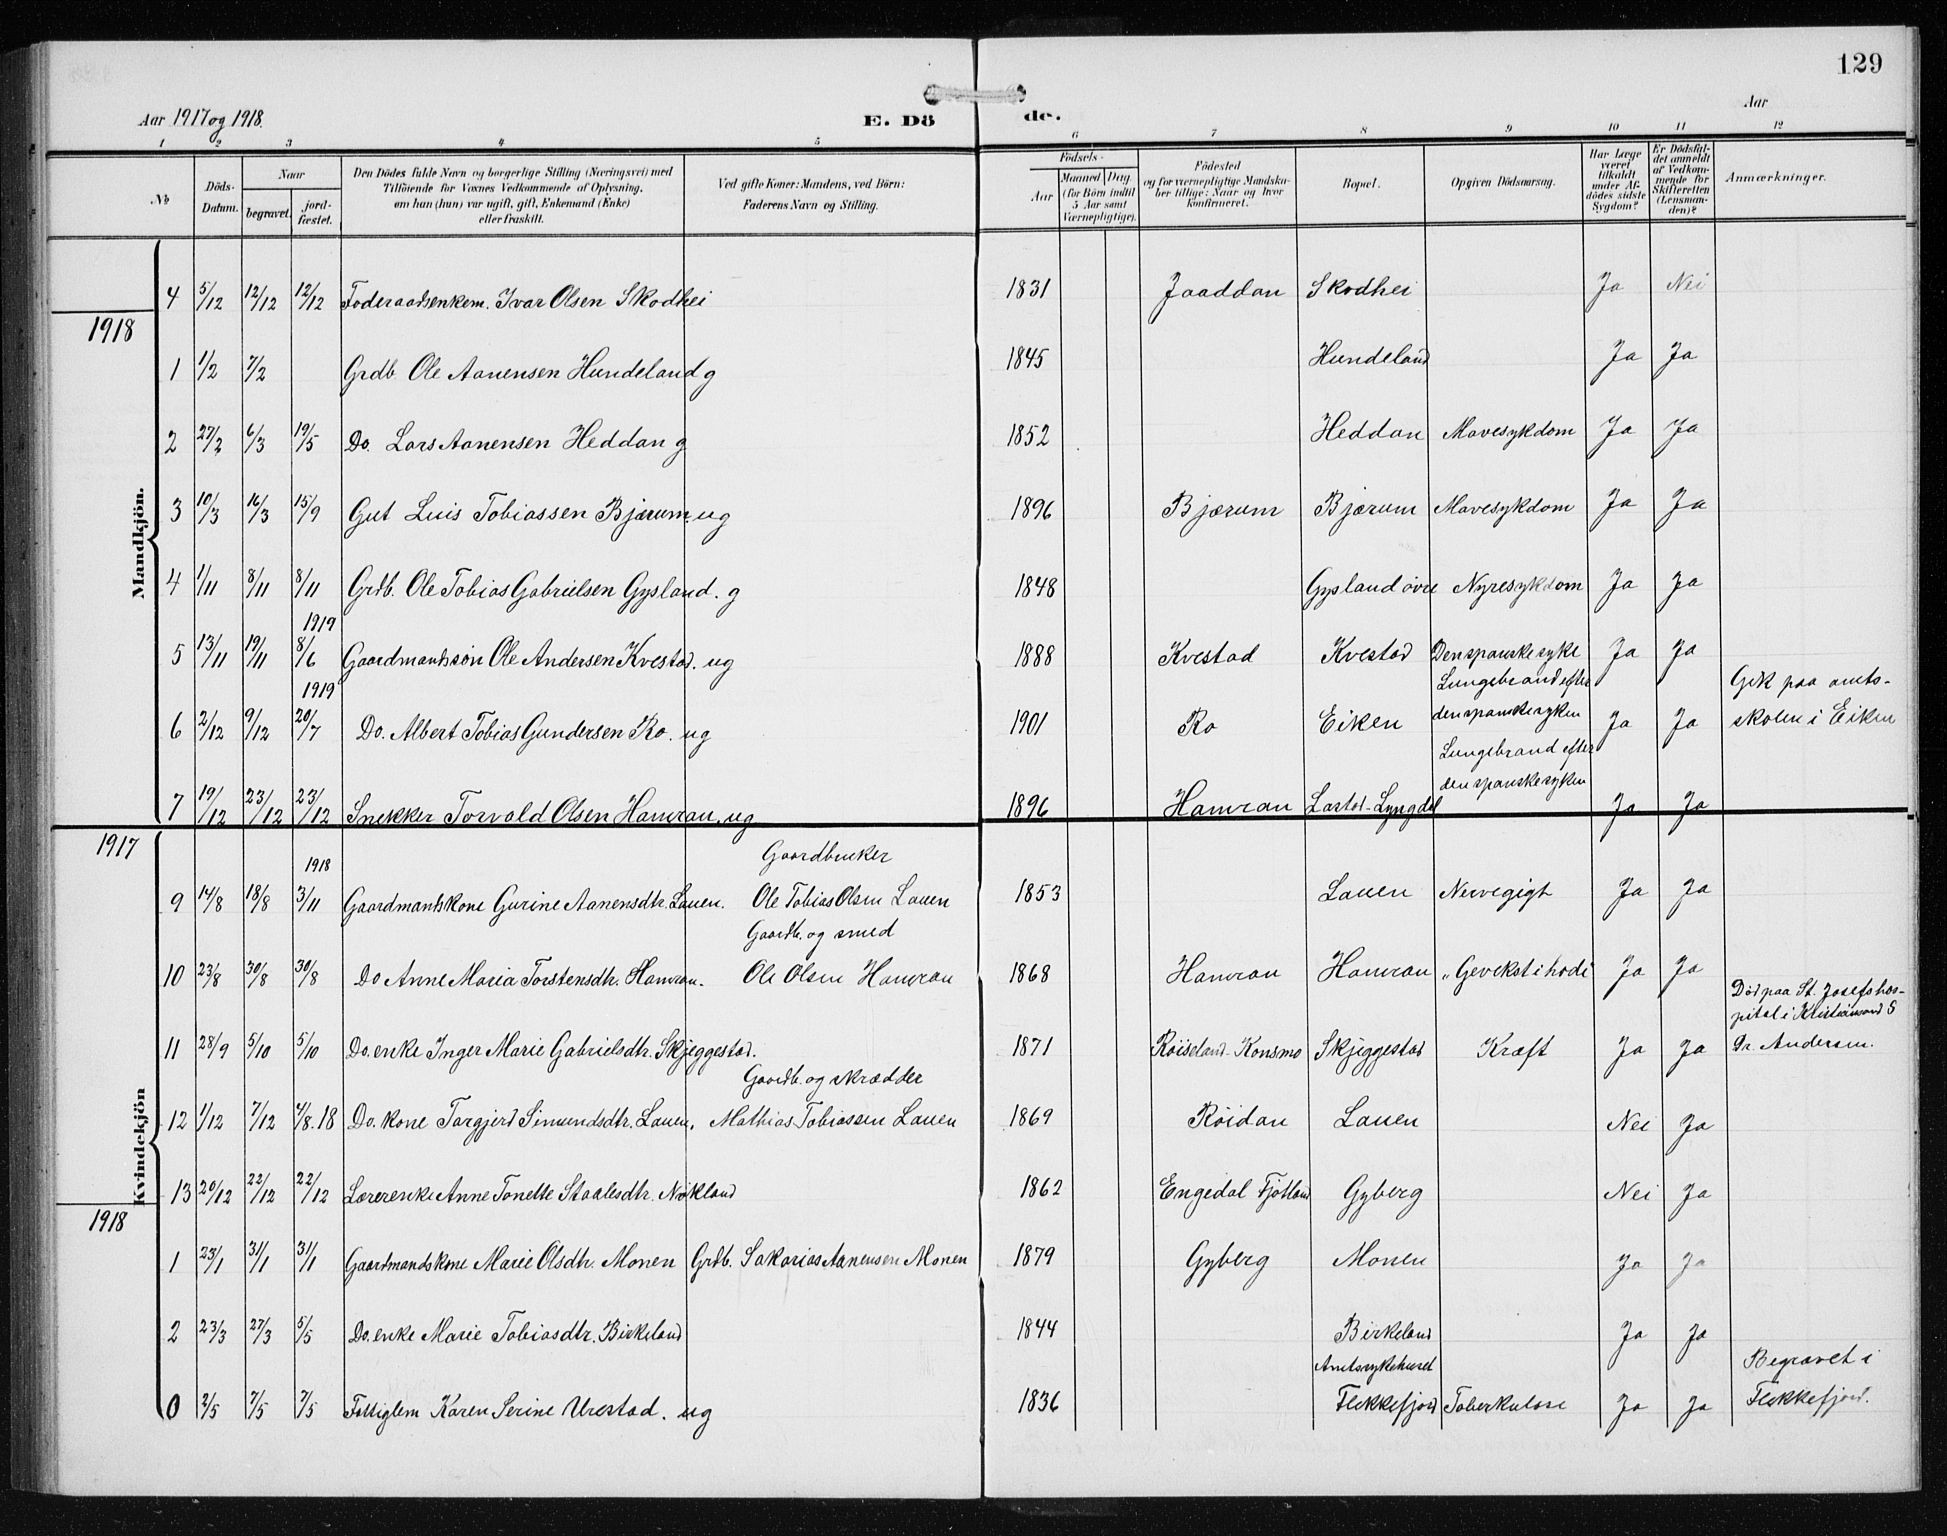 129
Aar 1917 og 1918.
E. Dö de.
Aar
1 2 3 4 5 6 7 8 9 10 11 12
No
Döds-Datum.
Naar
begravet.
jord-fæstet.
Den Dödes fulde Navn og borgerlige Stilling (Næringsvei) med
Tilföiende for Voxnes Vedkommende af Oplysning,
om han (hun) var ugift, gift, Enkemand (Enke)
eller fraskilt.
Ved gifte Koner: Mandens, ved Börn:
Faderens Navn og Stilling.
Födsels-
Aar
Maaned Dag
(for Börn indtil
5 Aar samt
Værnepligtige).
Födested
og for værnepligtige Mandska-
ber tillige: Naar og hvor
Konfirmeret.
Bopæl.
Opgiven Dödsaarsag.
Har Læge
været
tilkaldt
under Af-
dödes sidste
Sygdom?
Er Dödsfal-
det anmeldt
af Vedkom-
mende for
Skifteretten
(Lensman-
den)?
Anmærkninger.
Mandkjön.
4 5/12 12/12 12/12 Foderaadsenkem. Ivar Olsen Skodhei 1831 Jaaddan Skodhei Ja Nei
1918
1 1/2 7/2 Grdb. Ole Aanensen Hundeland g 1845 Hundeland Ja Ja
2 27/2 6/3 19/5 Do. Lars Aanensen Heddan g 1852 Heddan Mavesykdom Ja Ja
3 10/3 16/3 15/9 Gut Luis Tobiassen Bjærum. ug 1896 Bjærum Bjærum Mavesykdom Ja Ja
4 1/11 8/11 8/11 Grdb. Ole Tobias Gabrielsen Gysland. g 1848 Gysland övre Nyresykdom Ja Ja
1919
5 13/11 19/11 8/6 Gaardmandssön Ole Andersen Kvestad. ug 1888 Kvestad Kvestad Den spanske syke Ja Ja
1919 Lungebrand efter Gik paa amts-
6 2/12 9/12 20/7 Do. Albert Tobias Gundersen Ro. ug 1901 Ro Eiken den spanske syken Ja Ja skolen i Eiken
Lungebrand efter
den spanske syken
7 19/12 23/12 23/12 Snekker Torvald Olsen Hamran. ug 1896 Hamran Lastad-Lyngdal Ja Ja
Kvindekjön
1917
1918 Gaardbruker
9 14/8 18/8 3/11 Gaardmandskone Gurine Aanensdtr. Lauen. Ole Tobias Olsen Lauen 1853 Lauen Nervegigt Ja Ja
Gaardb. og smed
10 23/8 30/8 30/8 Do Anne Maria Torstensdtr. Hamran. Ole Olsen Hamran 1868 Hamran Hamran "Gevekst i hodi" Ja Ja
Död paa St. Josefshos-
pital i Kristiansand S
11 28/9 5/10 5/10 Do. enke Inger Marie Gabrielsdtr. Skjeggestad. 1871 Röiseland Konsmo Skjeggestad Kræft Ja Ja Dr. Andersen.
Gaardb. og skrædder
12 1/12 7/12 4/8.18 Do. kone Targjerd Simundsdtr. Lauen. Mathias Tobiassen Lauen 1869 Röidan Lauen Nei Ja
13 20/12 22/12 22/12 Lærerenke Anne Tonette Staalesdtr. Nökland 1862 Engedal Fjotland Gyberg Nei Ja
1918
1 23/1 31/1 31/1 Gaardmandskone Marie Olsdtr. Monen Grdb. Sakarias Aanensen Monen 1879 Gyberg Monen Ja Ja
2 23/3 27/3 5/5 Do. enke Marie Tobiasdtr. Birkeland 1844 Birkeland Ja Ja
Amtssykehuset Begravet i
0 2/5 7/5 7/5 Fattiglem Karen Serine Urestad. ug 1836 Flekkefjord Toberkulose Ja Ja Flekkefjord.